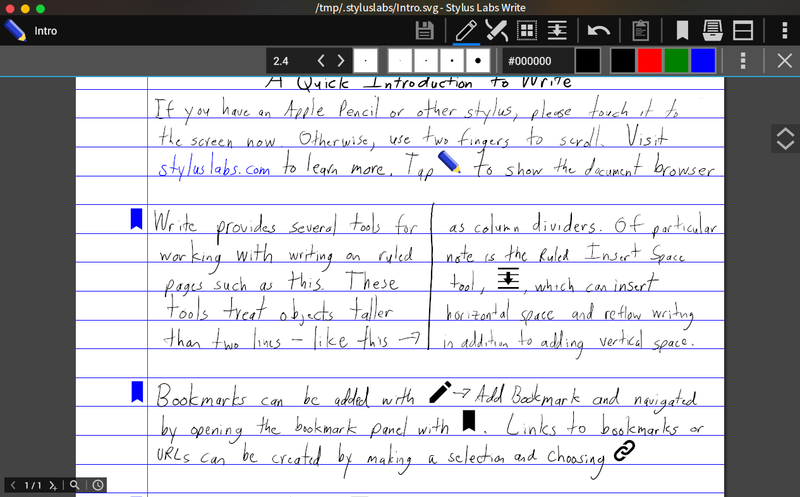 /tmp/.styluslabs/Intro.svg - Stylus Labs Write
Intro
2.4
#000000
A Quick Introduction to Write
If you have an Apple Pencil or other stylus, please touch it to
the screen now. Otherwise, use two fingers to scroll. Visit
styluslabs.com to learn more. Tap to show the document browser
Write provides several tools for
working with writing on ruled
pages such as this. These
tools treat objects taller
than two lines – like this →
as column dividers. Of particular
note is the Ruled Insert Space
tool, , which can insert
horizontal space and reflow writing
in addition to adding vertical space.
Bookmarks can be added with → Add Bookmark and navigated
by opening the bookmark panel with . Links to bookmarks or
URLs can be created by making a selection and choosing
1/1